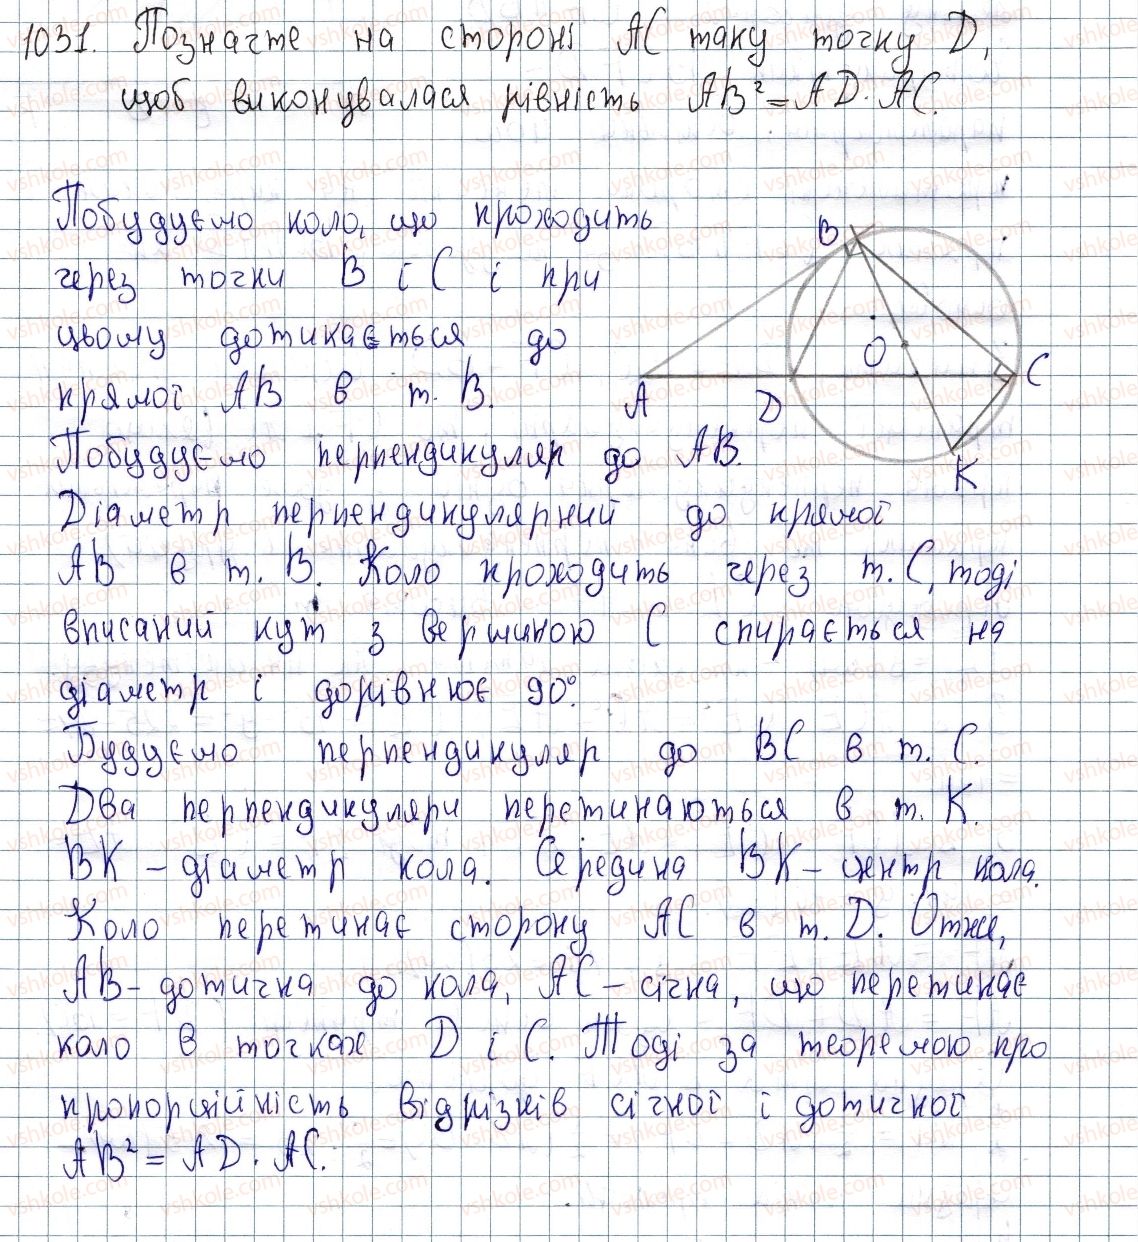 1031. Позначте на стороні AC таку точку D,
щоб виконувалася рівність AB² = AD · AC.
Побудуємо коло, що проходить
через точки B і C і при
цьому дотикається до
прямої AB в т. B.
Побудуємо перпендикуляр до AB.
Діаметр перпендикулярний до прямої
AB в т. B. Коло проходить через т. C, тоді
вписаний кут з вершиною C спирається на
діаметр і дорівнює 90°.
Будуємо перпендикуляр до BC в т. C.
Два перпендикуляри перетинаються в т. K.
BK – діаметр кола. Середина BK – центр кола.
Коло перетинає сторону AC в т. D. Отже,
AB – дотична до кола, AC – січна, що перетинає
коло в точках D і C. Тоді за теоремою про
пропорційність відрізків січної і дотичної
AB² = AD · AC.
B
O
C
A
D
K
vshkole.com